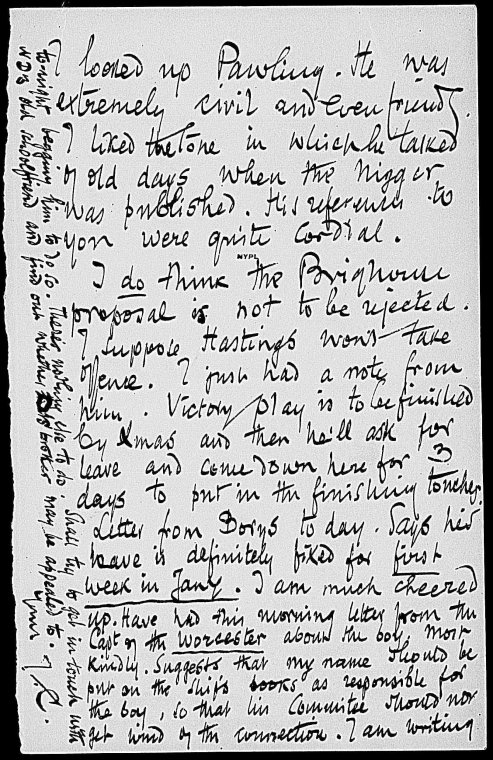 I looked up Pawling. He was
extremely civil and even friendly.
I liked the tone in which he talked
of old days when the Nigger
was published. His references to
you were quite cordial.
NYPL
I do think the Brighouse
proposal is not to be rejected.
I suppose Hastings won't take
offence. I just had a note from
him. Victory play is to be finished
by Xmas and then he'll ask for
leave and come down here for 3
days to put in the finishing touches.
Letter from Borys to day. Says his
leave is definitely fixed for first
week in Jany. I am much cheered
up. Have had this morning letter from the
Capt of the Worcester about the boy, most
kindly. Suggests that my name should be
put on the ship's books as responsible for
the boy, so that his Committee should not
get wind of the connection. I am writing
to-night begging him to do so. There's nothing else to do. Shall try to get in touch with
old and find out whether broker may be appealed to.
Yours